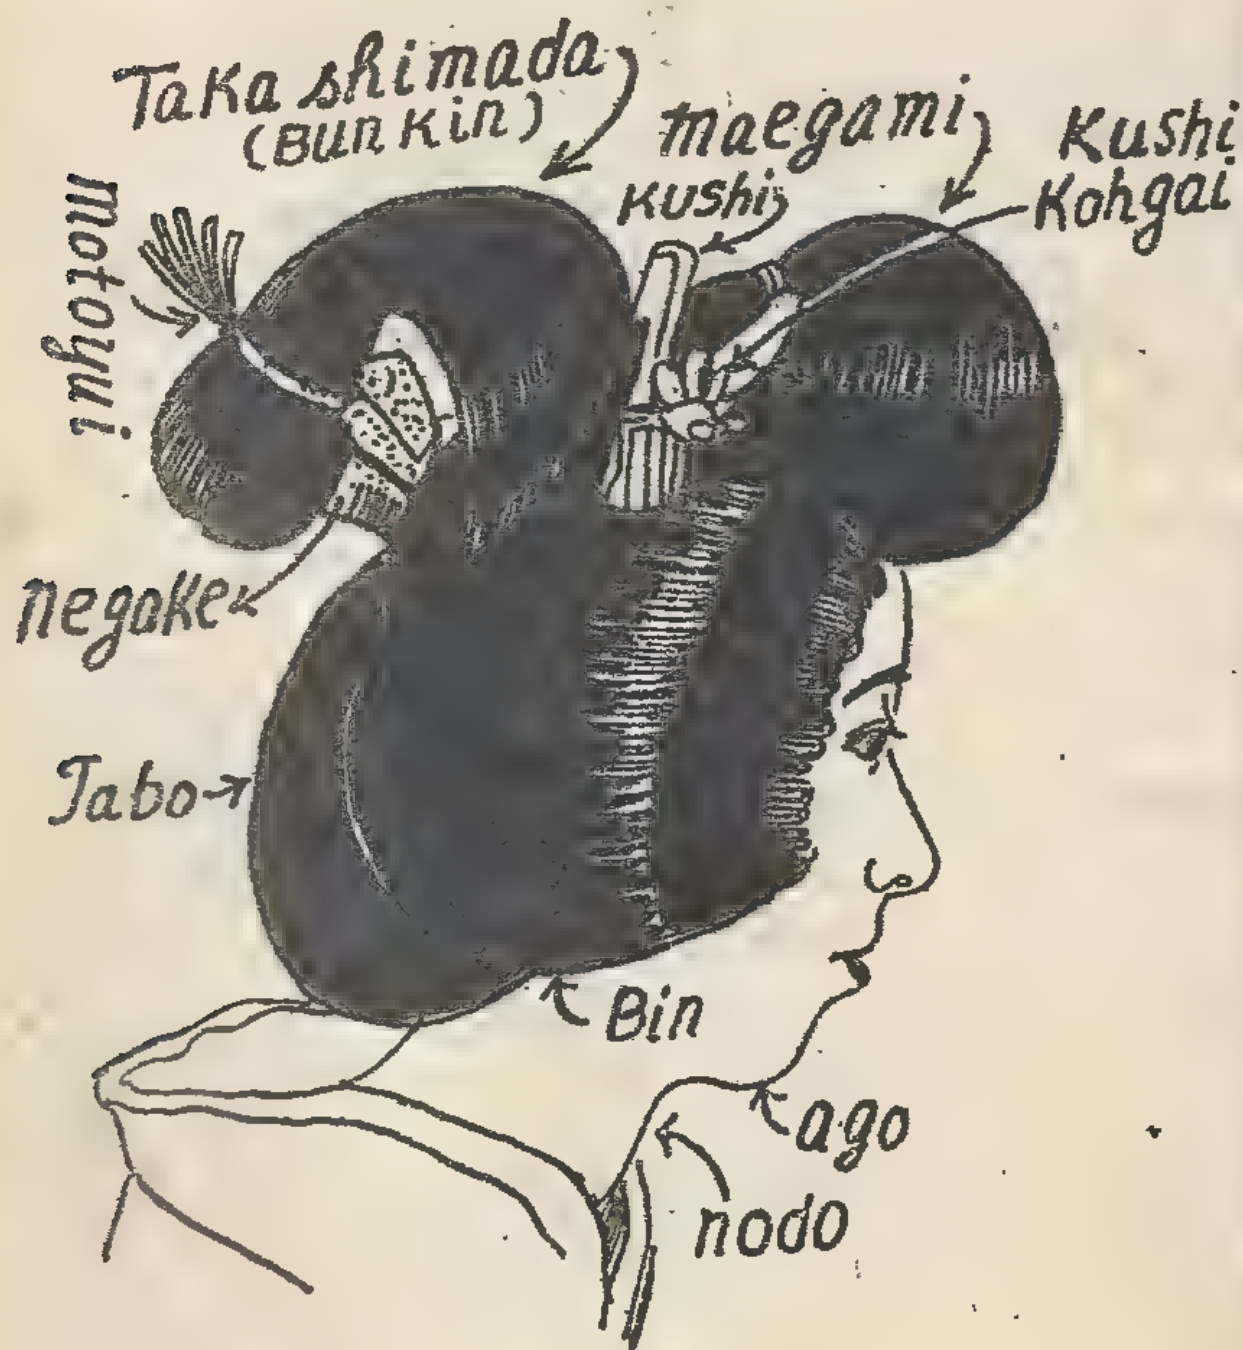 Taka shimada
(Bun Kin)
maegami
Kushi
Kohgai
Kushi
motoyui
negake
Tabo
Bin
ago
nodo